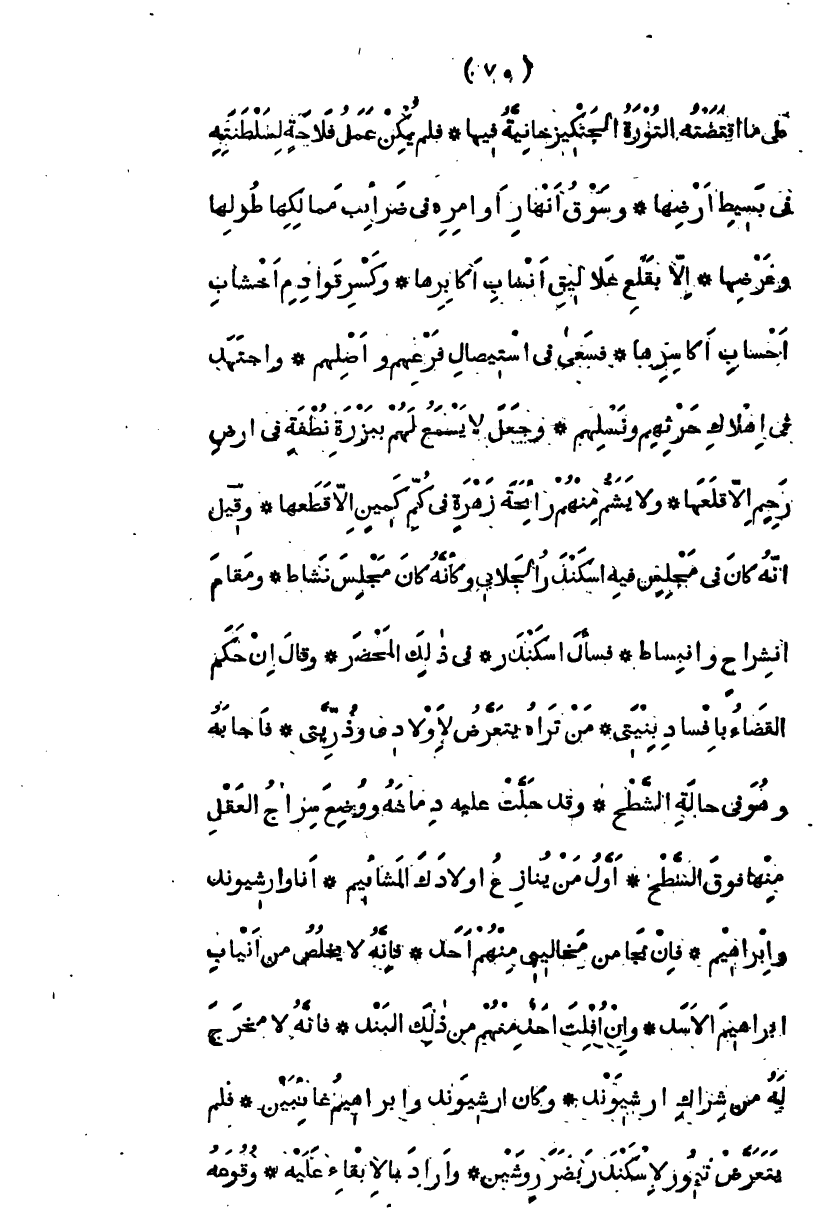 (٧٥)
على ما اقْتَضَتْه التَّوْرَةُ الْجَنْكِيزخانِيَّةُ فِيها * فلم يُمْكِنْ عَمَلُ فَلاحَةٍ لِسَلْطَنَتِهِ
فى بَسِيطِ اَرْضِها * وسَوْقُ اَنْهارِ اَوامِرِه فى ضَرائِبِ مَمالِكِها طُولِها
وعَرْضِها * اِلّا بقَلْعِ عَلالِيقِ اَنْشابِ اَكابِرِها * وكَسْرِ قَوادِمِ اَخْشابِ
اَحْسابِ اَكاسِرِها * فسَعىٰ فى اسْتِيصالِ فَرْعِهِم واَصْلِهِم * واجتَهَدَ
فى اِهْلاكِ حَرْثِهِم ونَسْلِهِم * وجَعَلَ لا يَسْمَعُ لَهُمْ ببَزْرَةِ نُطْفَةٍ فى ارضِ
رَحِمٍ اِلّا قلَعَها * ولا يَشَمُّ مِنْهُمْ رائِحَةَ زَهْرَةٍ فى كُمِّ كَمِينٍ اِلّا قَطَعها * وقِيل
انّهُ كانَ فى مَجْلِسٍ فيه اسكَنْدَرُ الْجَلابى وكَأنَّهُ كانَ مَجْلِسَ نَشاط * ومَقامَ
انشِراحٍ وانبِساط * فسألَ اسكَنْدَر * فى ذٰلِكَ المَحْضَر * وقالَ اِنْ حَكَمَ
القَضَاءُ بِاِفْسادِ بِنْيَتى * مَنْ تَراهُ يتَعَرَّضُ لِأَوْلادى وذُرِّيَّتى * فَاَجابَهُ
وهُوَ فى حالَةِ الشَّطْح * وقد خَلَّتْ عليه دِماغَهُ ووُضِعَ سِراجُ العَقْلِ
مِنْها فوقَ السَّطْح * اَوَّلُ مَنْ يُنازِعُ اولادَكَ المَشائِيم * اَنا وارشيوند
واِبْراهِيْم * فاِنْ نَجا من مَخالِيبى مِنْهُمْ اَحَد * فاِنَّهُ لا يخلُصُ من اَنْيابِ
ابراهيمَ الاَسَد * واِنْ اُفْلِتَ احَدٌ مِنْهُمْ من ذٰلِكَ البَنْد * فانَّهُ لا مخرَجَ
لَهُ من شِراكِ ارشِيوَنْد * وكان ارشِيوَند وابراهِيمُ غائبَيْن * فلم
يتَعَرَّضْ تيمور لاِسْكَنْدَر بضَرَرٍ وشَيْن * واَرادَ بالاِبْقاءِ عَلَيْه * وُقُوعَهُ